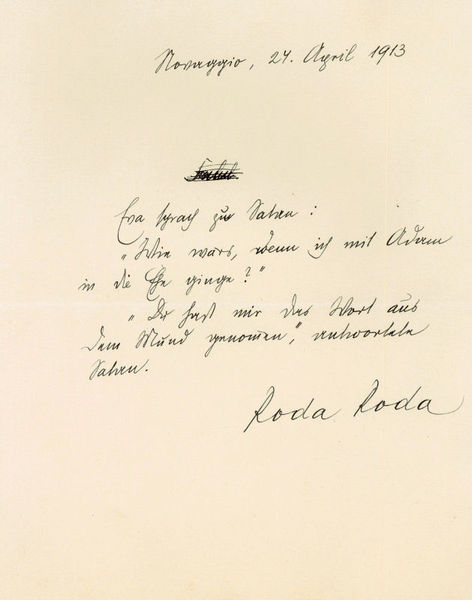 Novaggio, 24. April 1913
Eva sprach zu Satan:
"Wie wärs, wenn ich mit Adam
in die Ehe ginge?"
"Du hast mir das Wort aus
dem Mund genomen", antwortete
Satan.
Roda Roda